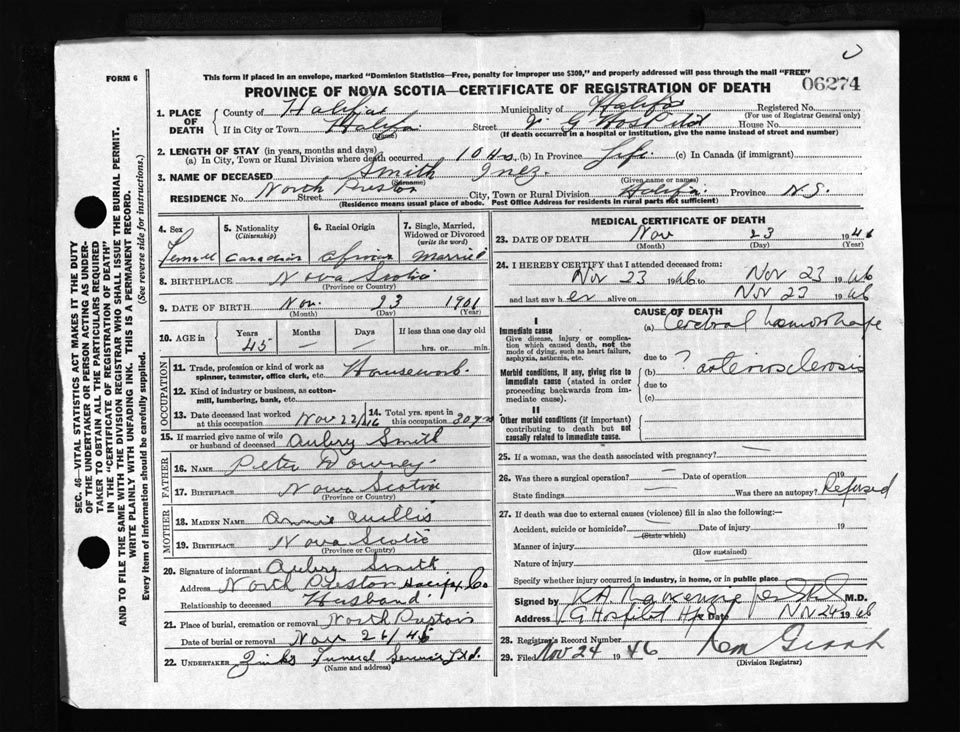 FORM 6
This form if placed in an envelope, marked "Dominion Statistics—Free, penalty for improper use $300," and properly addressed will pass through the mail "FREE"
06274
PROVINCE OF NOVA SCOTIA—CERTIFICATE OF REGISTRATION OF DEATH
SEC. 46—VITAL STATISTICS ACT MAKES IT THE DUTY
OF THE UNDERTAKER OR PERSON ACTING AS UNDER-
TAKER TO OBTAIN ALL THE PARTICULARS REQUIRED
IN THE "CERTIFICATE OF REGISTRATION OF DEATH"
AND TO FILE THE SAME WITH THE DIVISION REGISTRAR WHO SHALL ISSUE THE BURIAL PERMIT.
WRITE PLAINLY WITH UNFADING INK. THIS IS A PERMANENT RECORD.
Every item of information should be carefully supplied. (See reverse side for instructions.)
1. PLACE OF DEATH County of Halifax Municipality of Halifax Registered No.
(For use of Registrar General only)
If in City or Town Halifax Street V. G. Hospital House No.
(Name) (If death occurred in a hospital or institution, give the name instead of street and number)
2. LENGTH OF STAY (in years, months and days)
(a) In City, Town or Rural Division where death occurred (b) In Province Life (c) In Canada (if immigrant)
3. NAME OF DECEASED Smith Inez
(Surname) (Given name or names)
RESIDENCE No. North Preston Street City, Town or Rural Division Halifax Province N.S.
(Residence means usual place of abode. Post Office Address for residents in rural parts not sufficient)
4. Sex 5. Nationality (Citizenship) 6. Racial Origin 7. Single, Married, Widowed or Divorced (write the word)
Female Canadian African Married
8. BIRTHPLACE Nova Scotia
(Province or Country)
9. DATE OF BIRTH Nov. 23 1901
(Month) (Day) (Year)
10. AGE in Years Months Days If less than one day old
45 — — hrs. or min.
OCCUPATION
11. Trade, profession or kind of work as spinner, teamster, office clerk, etc. Housework.
12. Kind of industry or business, as cotton-mill, lumbering, bank, etc.
13. Date deceased last worked at this occupation Nov 22/46 14. Total yrs. spent in this occupation 30 yrs
15. If married give name of wife or husband of deceased Aubry Smith
FATHER
16. NAME Peter Downey
17. BIRTHPLACE Nova Scotia
(Province or Country)
MOTHER
18. MAIDEN NAME Annie
19. BIRTHPLACE Nova Scotia
(Province or Country)
20. Signature of informant Aubry Smith
Address North Preston Halifax Co
Relationship to deceased Husband
21. Place of burial, cremation or removal North Preston
Date of burial or removal Nov 26/46
22. UNDERTAKER Zinks Funeral Service Ltd.
(Name and address)
MEDICAL CERTIFICATE OF DEATH
23. DATE OF DEATH Nov 23 1946
(Month) (Day) (Year)
24. I HEREBY CERTIFY that I attended deceased from:
Nov 23 1946 to Nov 23 1946
and last saw her alive on Nov 23 1946
CAUSE OF DEATH
I
Immediate cause (a) Cerebral haemorrhage
Give disease, injury or complication which caused death, not the mode of dying, such as heart failure, asphyxia, asthenia, etc.
due to ? arteriosclerosis
Morbid conditions, if any, giving rise to immediate cause (stated in order proceeding backwards from immediate cause). (b)
due to
(c)
II
Other morbid conditions (if important) contributing to death but not causally related to immediate cause.
25. If a woman, was the death associated with pregnancy?
26. Was there a surgical operation? — Date of operation 19
State findings — Was there an autopsy? Refused
27. If death was due to external causes (violence) fill in also the following:—
Accident, suicide or homicide? Date of injury 19
(State which)
Manner of injury
(How sustained)
Nature of injury
Specify whether injury occurred in industry, in home, or in public place
Signed by K A MacKenzie per M.D.
Address V G Hospital Hfx Date Nov 24 1946
28. Registrar's Record Number
29. Filed Nov 24 1946
(Division Registrar)